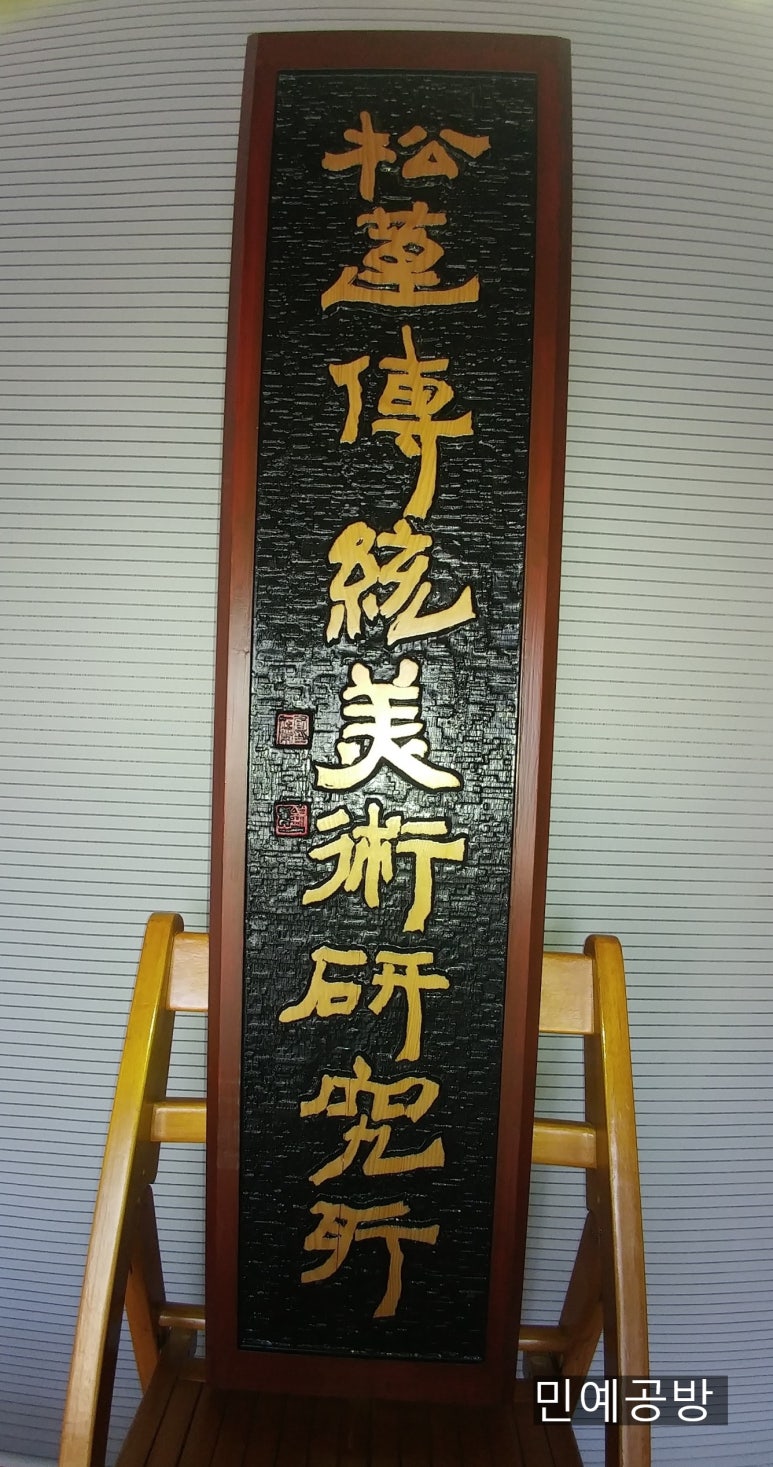 松蓮傳統美術研究所
민예공방